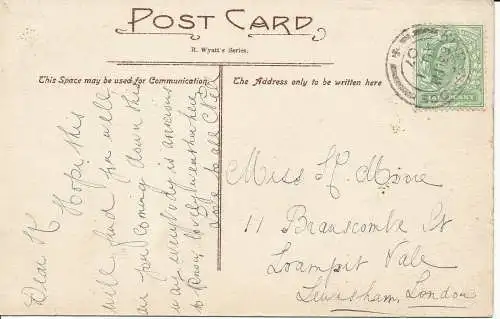 POST CARD
R. Wyatt's Series.
This Space may be used for Communication
The Address only to be written here
Dear K Hope this
will find you well
are you coming down this
way everybody is anxious
to know lovely weather here
love to all
Miss K. Moore
11 Branscombe St
Loampit Vale
Lewisham, London